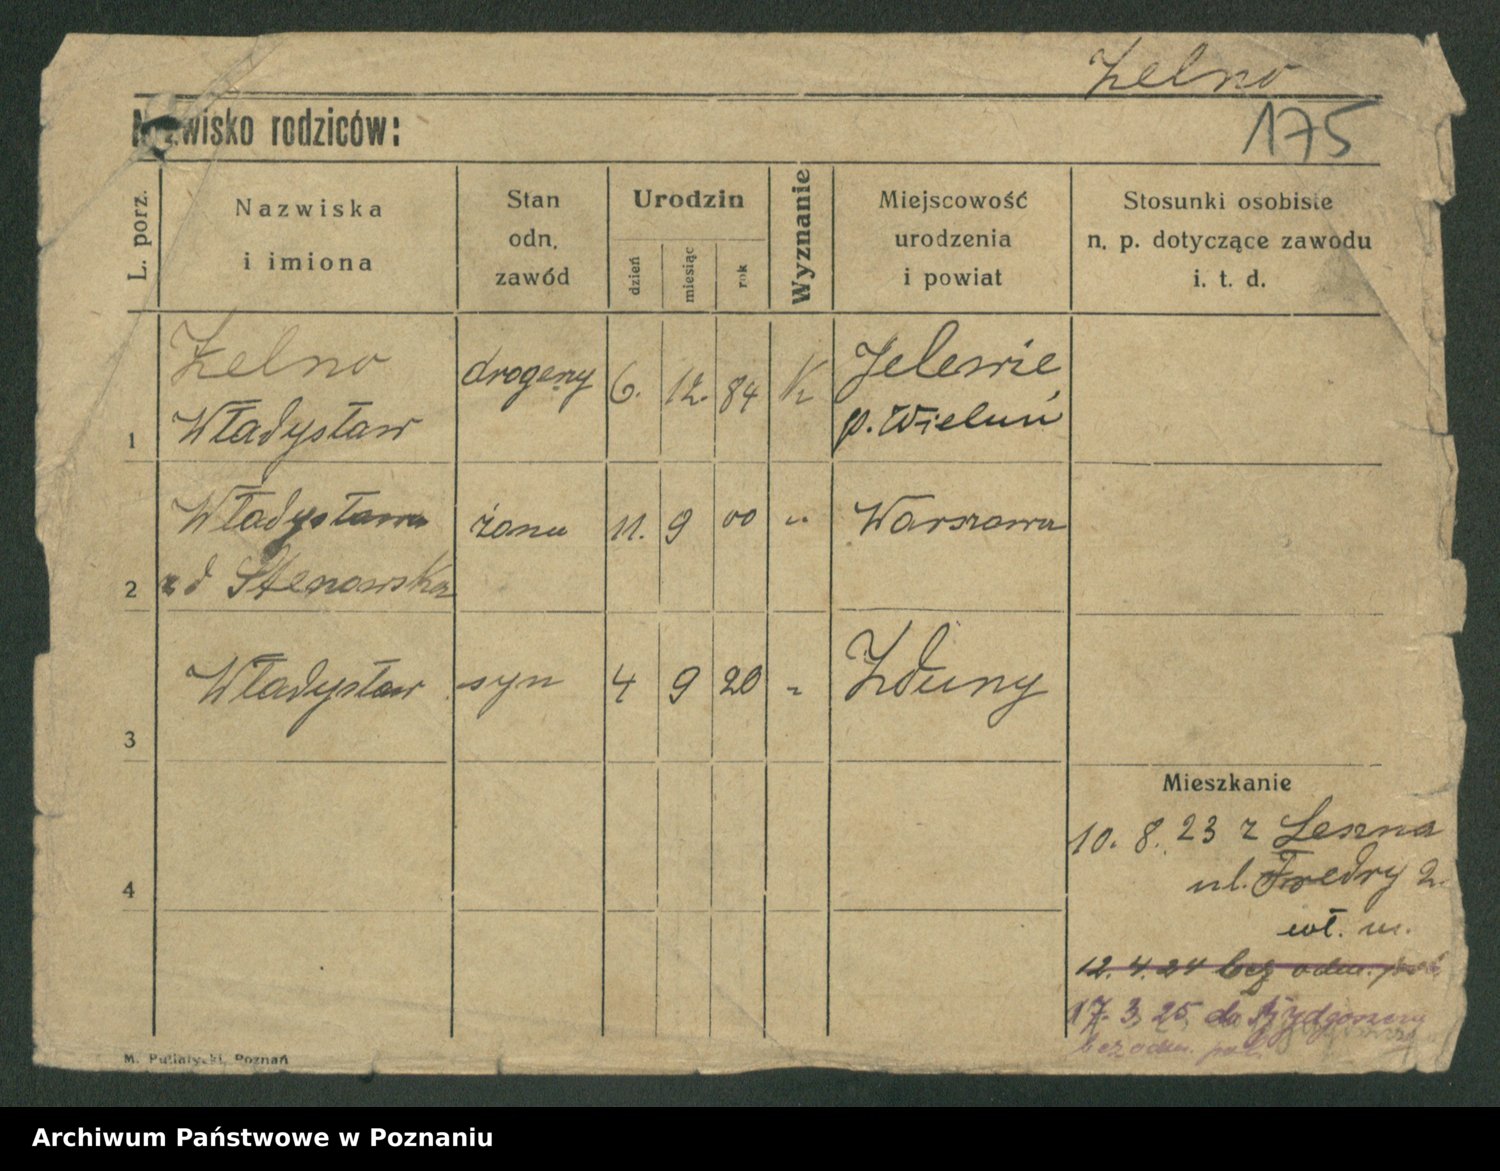 Zelno
175
Nazwisko rodziców:
L. porz.
Nazwiska
i imiona
Stan
odn.
zawód
Urodzin
dzień
miesiąc
rok
Wyznanie
Miejscowość
urodzenia
i powiat
Stosunki osobiste
n. p. dotyczące zawodu
i. t. d.
1
Zelno
Władysław
6. 12. 84 K
p. Wieluń
2
Władysława
żona 11. 9 00 " Warszawa
3
Władysław syn 4 9 20 " Zduny
4
Mieszkanie
10. 8. 23 z Leszna
ul. Fredry 2.
wł. m.
12. 4. 24 bez odm. pol.
17. 3. 25 do Bydgoszczy
bez odm. pol.
M. Putiatycki, Poznań
Archiwum Państwowe w Poznaniu